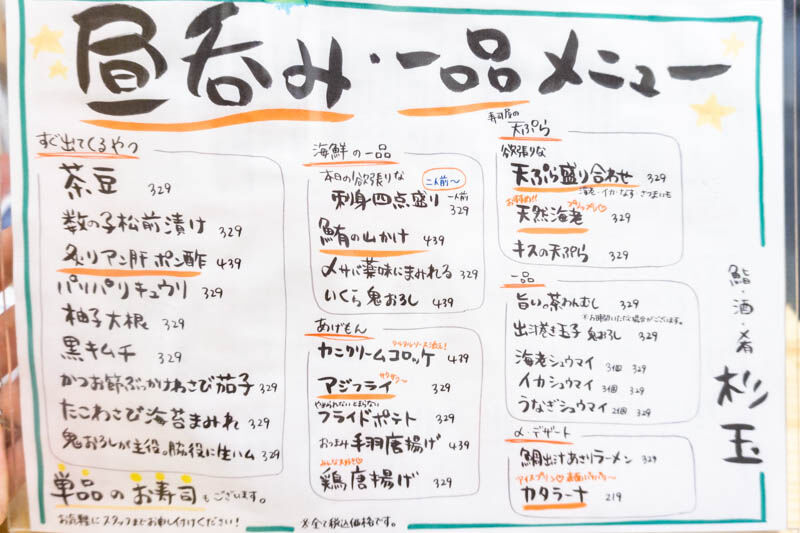 昼呑み・一品メニュー
すぐ出てくるやつ
茶豆 329
数の子松前漬け 329
炙りアン肝ポン酢 439
パリパリキュウリ 329
柚子大根 329
黒キムチ 329
かつお節ぶっかけわさび茄子 329
たこわさび海苔まみれ 329
鬼おろしが主役。脇役に生ハム 329
単品のお寿司もございます。
お気軽にスタッフまでお申し付けください!
海鮮の一品
本日の欲張りな 二人前〜
刺身四点盛り 一人前 329
鮪の山かけ 439
〆サバ薬味にまみれる 329
いくら鬼おろし 439
あげもん
タルタルソース添え!
カニクリームコロッケ 439
サクサク〜
アジフライ 329
やめられないとまらない
フライドポテト 329
おつまみ手羽唐揚げ 439
みんな大好き♡
鶏唐揚げ 329
※全て税込価格です。
寿司屋の
天ぷら
欲張りな
天ぷら盛り合わせ 329
海老・イカ・なす さつまいも
おすすめ!! プリップリ♡
天然海老 329
キスの天ぷら 329
一品
旨い。茶わんむし 329
※お時間いただく場合がございます。
出汁巻き玉子 鬼おろし 329
海老シュウマイ 3個 329
イカシュウマイ 3個 329
うなぎシュウマイ 2個 329
〆・デザート
鯛出汁あさりラーメン 329
アイスプリン♡
カタラーナ 219
鮨・酒・肴
杉玉